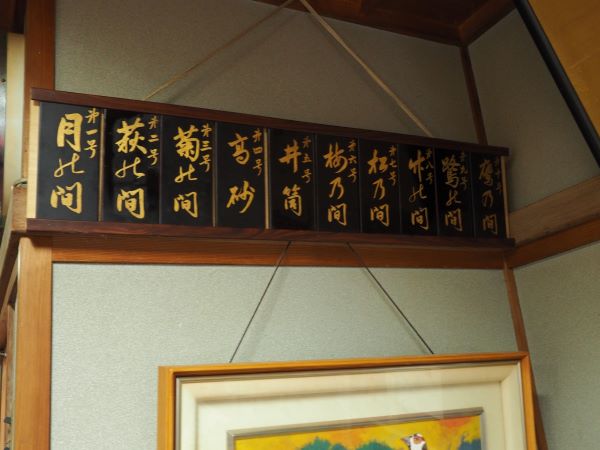 第一号
月の間
第二号
萩の間
第三号
菊の間
第四号
高砂
第五号
井筒
第六号
梅乃間
第七号
松乃間
第八号
竹の間
第九号
鷺の間
第十号
鷹乃間